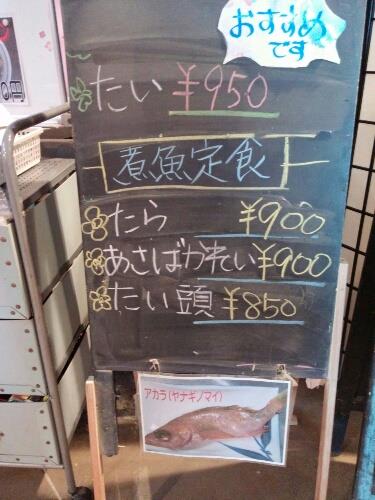 おすすめ
です
たい ¥950
煮魚定食
たら ¥900
あさばがれい ¥900
たい頭 ¥850
アカラ(ヤナギノマイ)